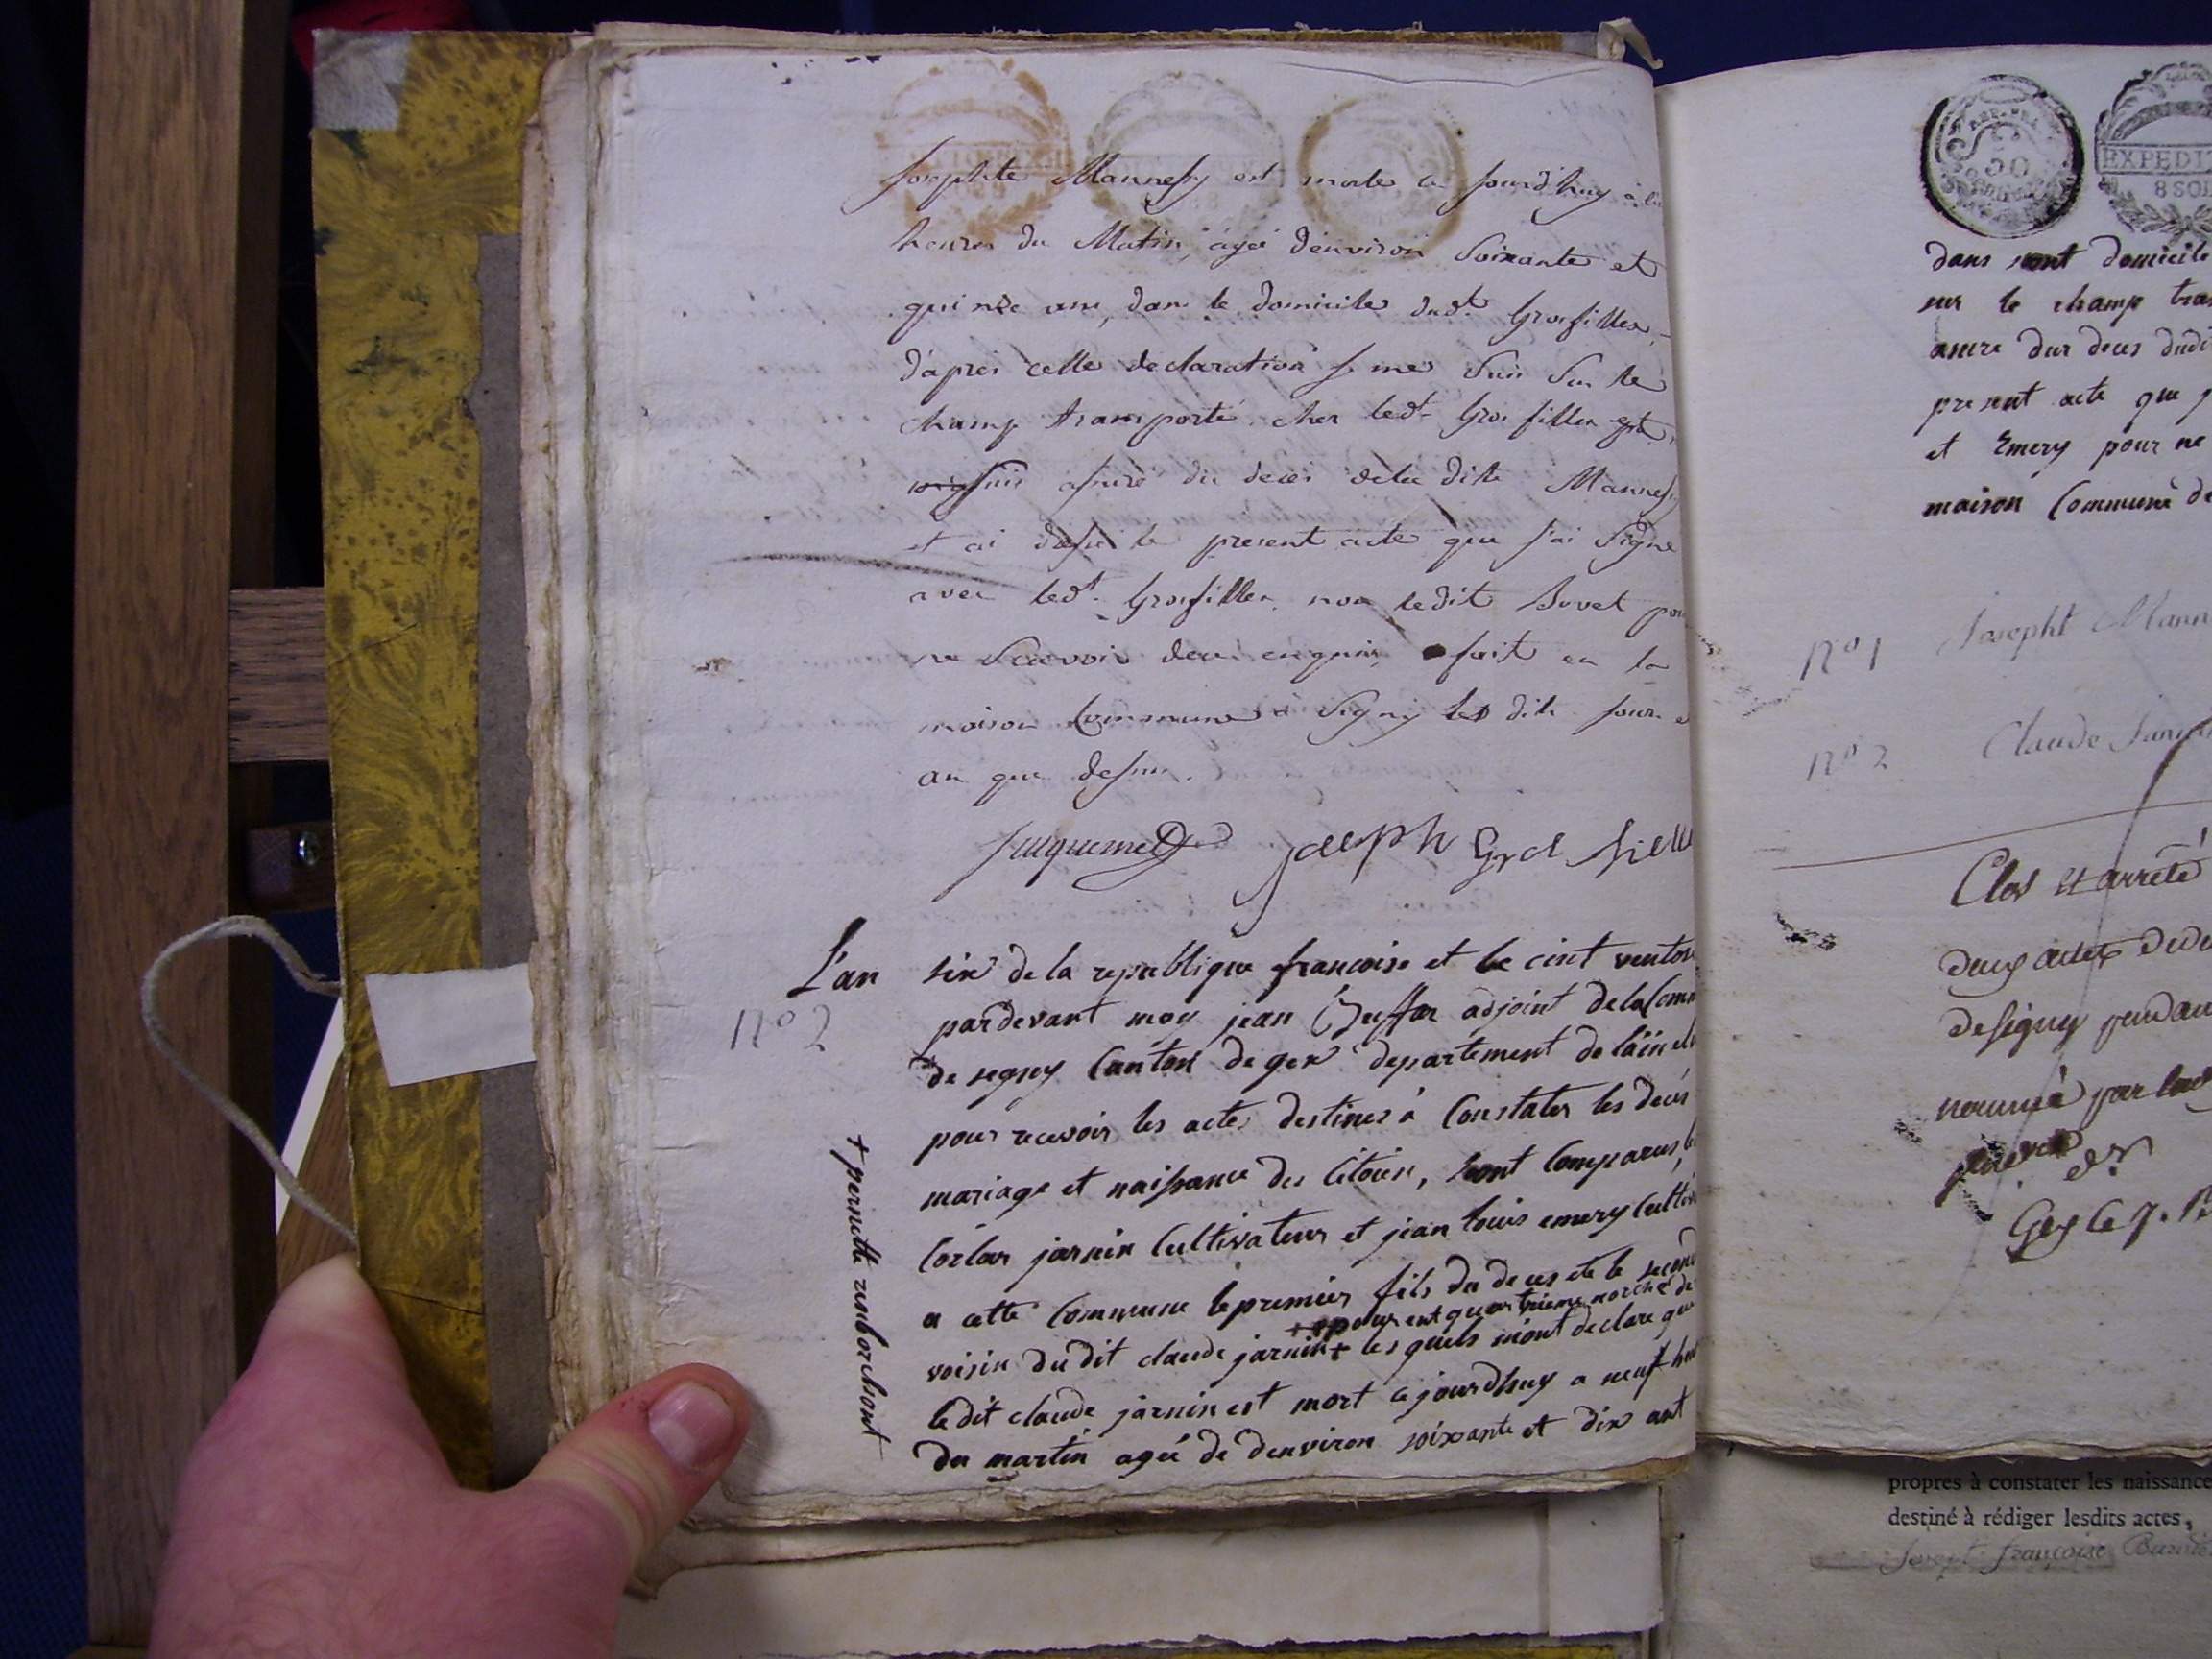 Josephte Mannessy est morte ce jourd'huy à
heures du Matin, agée d'environ Soixante et
quinze ans, dans le domicile dudt. Grosfillex,
d'après cette declaration je me Suis Sur le
champ transporté chez ledt. Grosfillex
suis assuré du deces de la dite Manness
et ai dressé le present acte que j'ai Signé
avec ledt. Grosfillex non ledit Bovet pou
ne Scavoir de ce enquis, fait en la
maison Commune à Segny les dits jour e
an que dessus.
Juquemed Joseph Gros fille
L'an six de la republique francoise et le cint ventos
par devant moy jean adjoint de la Comm
N° 2
de segny Canton de gex departement de l'ain el
pour recevoir les actes destines à Constater les decés
mariage et naissance des Citoien, sont Comparus, le
jarnin Cultivateur et jean louis emery Cultiv
a cette Commune le premier fils du deces et le second
+ epoux ent quatrieme norche de
voisin du dit claude jarnin + les quels m'ont declare que
le dit claude jarnin est mort ce jourdhuy a neuf heu
du martin ageé de denviron soixante et dix ant
+ pernette renborchont
REP. FRA.
50
EXPEDIT
8 SOL
dans sont domicile
sur le champ tra
assure dur deces dudi
present acte que j
et Emery pour ne
maison Commune de
N° 1 Josepht Mann
N° 2 Claude Jarnin
Clos et arrêté
deux actes de de
de Segny pendan
nommé par
Gex le 7.
propres à constater les naissance
destiné à rédiger lesdits actes,
Josept françoise